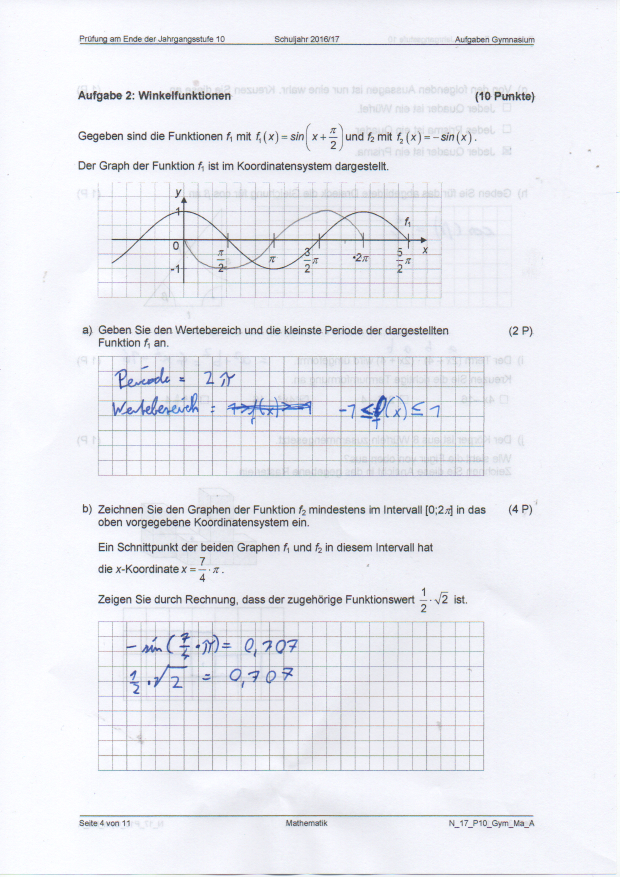 Prüfung am Ende der Jahrgangsstufe 10 Schuljahr 2016/17 Aufgaben Gymnasium
Aufgabe 2: Winkelfunktionen (10 Punkte)
Gegeben sind die Funktionen f₁ mit f₁(x) = sin(x + π/2) und f₂ mit f₂(x) = −sin(x).
Der Graph der Funktion f₁ ist im Koordinatensystem dargestellt.
y
1
f₁
0
-1
π/2 π 3/2 π 2π 5/2 π x
a) Geben Sie den Wertebereich und die kleinste Periode der dargestellten (2 P)
Funktion f₁ an.
Periode = 2π
Wertebereich : -1 ≤ f₁(x) ≤ 1
b) Zeichnen Sie den Graphen der Funktion f₂ mindestens im Intervall [0;2π] in das (4 P)
oben vorgegebene Koordinatensystem ein.
Ein Schnittpunkt der beiden Graphen f₁ und f₂ in diesem Intervall hat
die x-Koordinate x = 7/4 · π.
Zeigen Sie durch Rechnung, dass der zugehörige Funktionswert 1/2 · √2 ist.
- sin(7/4 · π) = 0,707
1/2 · √2 = 0,707
Seite 4 von 11 Mathematik N_17_P10_Gym_Ma_A